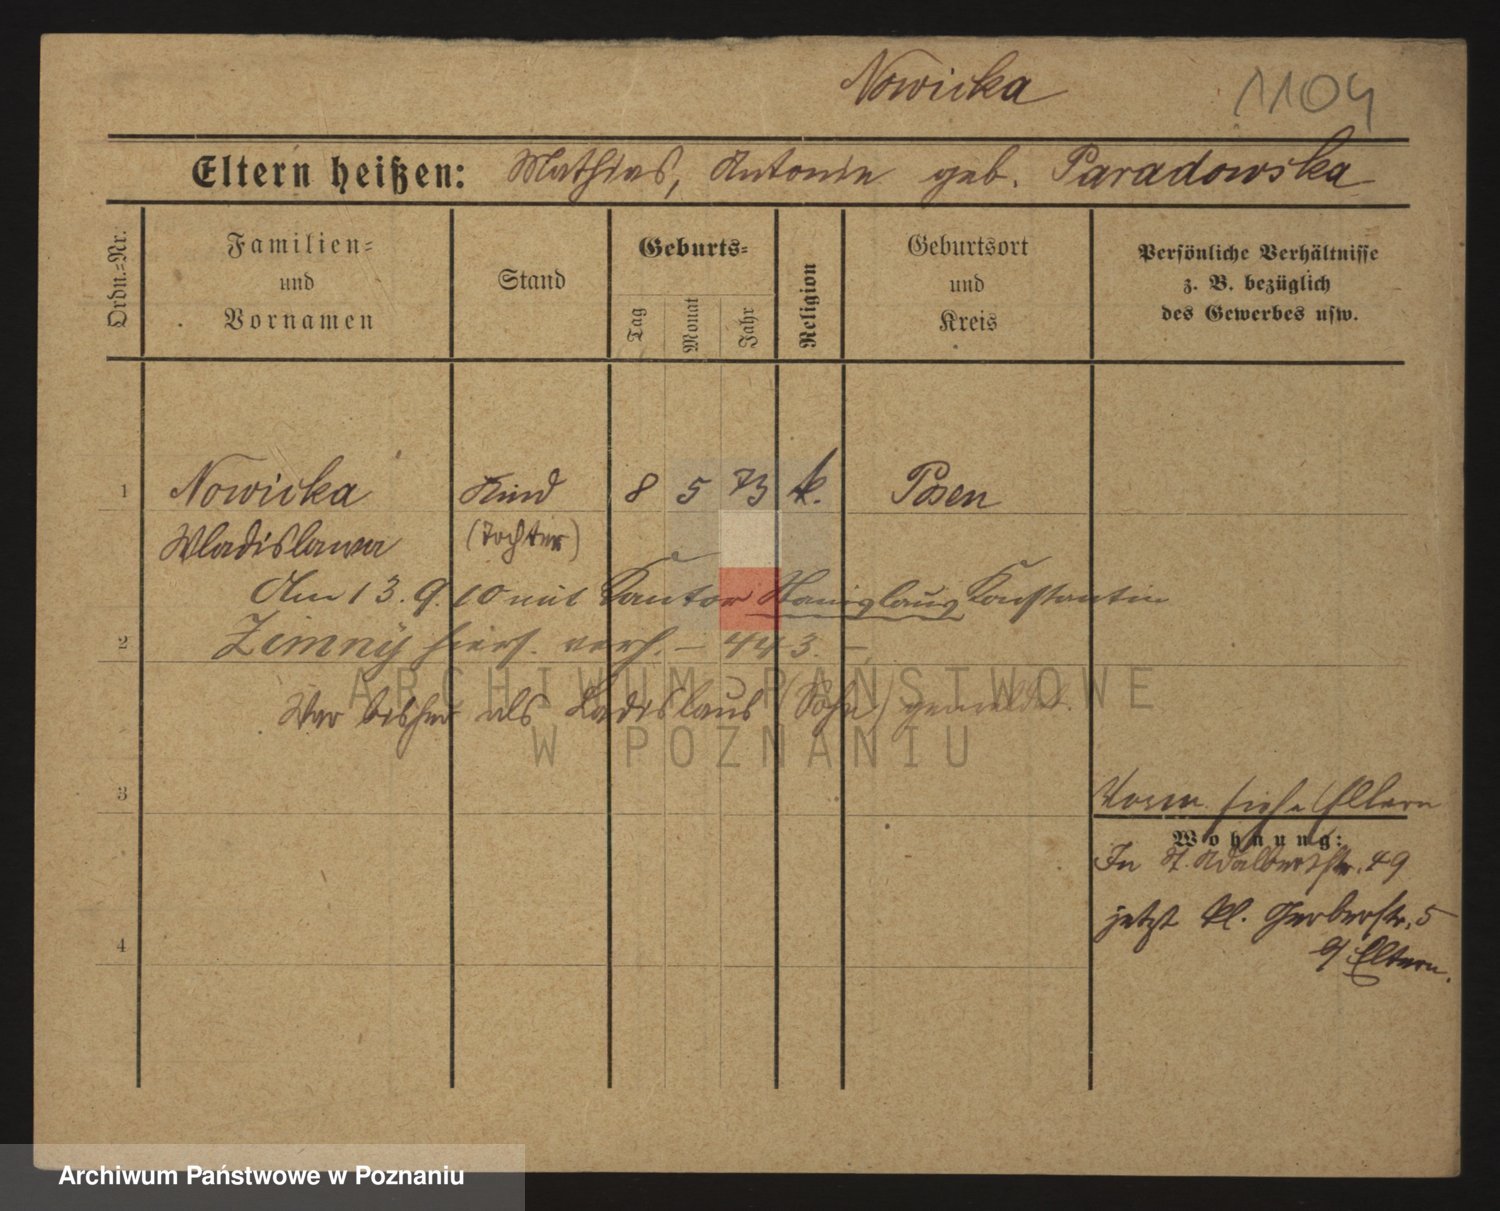 Nowicka 1104
Eltern heißen: Mathias, Antonie geb. Paradowska
Ordn.-Nr.
Familien- und Vornamen
Stand
Geburts-
Tag
Monat
Jahr
Religion
Geburtsort und Kreis
Persönliche Verhältnisse z. B. bezüglich des Gewerbes usw.
1 Nowicka Kind 8 5 73 k. Posen
Wladislawa (Tochter)
Am 13. 9. 10 mit Kantor Stanislaus Konstantin
2 Zimny hiers. verh. – 443. –
War bisher als Ladislaus (Sohn) gemeldet.
ARCHIWUM PAŃSTWOWE
W POZNANIU
3
siehe Eltern
Wohnung:
In St. Adalbertstr. 49
jetzt kl. Gerberstr. 5
4
Eltern.
Archiwum Państwowe w Poznaniu